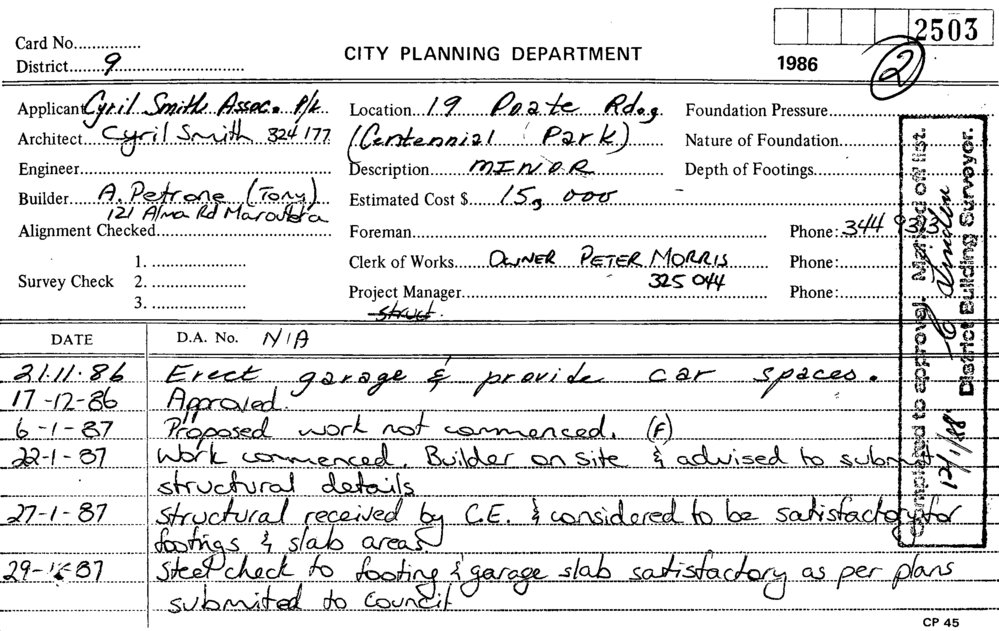 2503
Card No...............
District......9...........................
CITY PLANNING DEPARTMENT
1986
2
Applicant Cyril Smith Assoc. P/L
Location...19 Poate Rd.,
Foundation Pressure...................
Architect...Cyril Smith 324 177
(Centennial Park)
Nature of Foundation...................
Engineer...................
Description.......MINOR
Depth of Footings...................
Builder.....A. Petrone (Tony)
121 Alma Rd Maroubra
Estimated Cost $......15, 000
Alignment Checked...................
Foreman...................
Phone: 344 9313
Survey Check
1. ...................
2. ...................
3. ...................
Clerk of Works......OWNER PETER MORRIS
325 044
Phone:...................
Project Manager...................
Phone:...................
Struct.
DATE
D.A. No. N/A
21.11.86 Erect garage & provide car spaces.
17-12-86 Approved.
6-1-87 Proposed work not commenced. (F)
22-1-87 Work commenced. Builder on site & advised to submit
structural details
27-1-87 Structural received by C.E. & considered to be satisfactory for
footings & slab areas
29-1-87 Steel check to footing & garage slab satisfactory as per plans
submitted to Council
Completed to approval. Marked off list.
12/1/88
District Building Surveyor.
CP 45